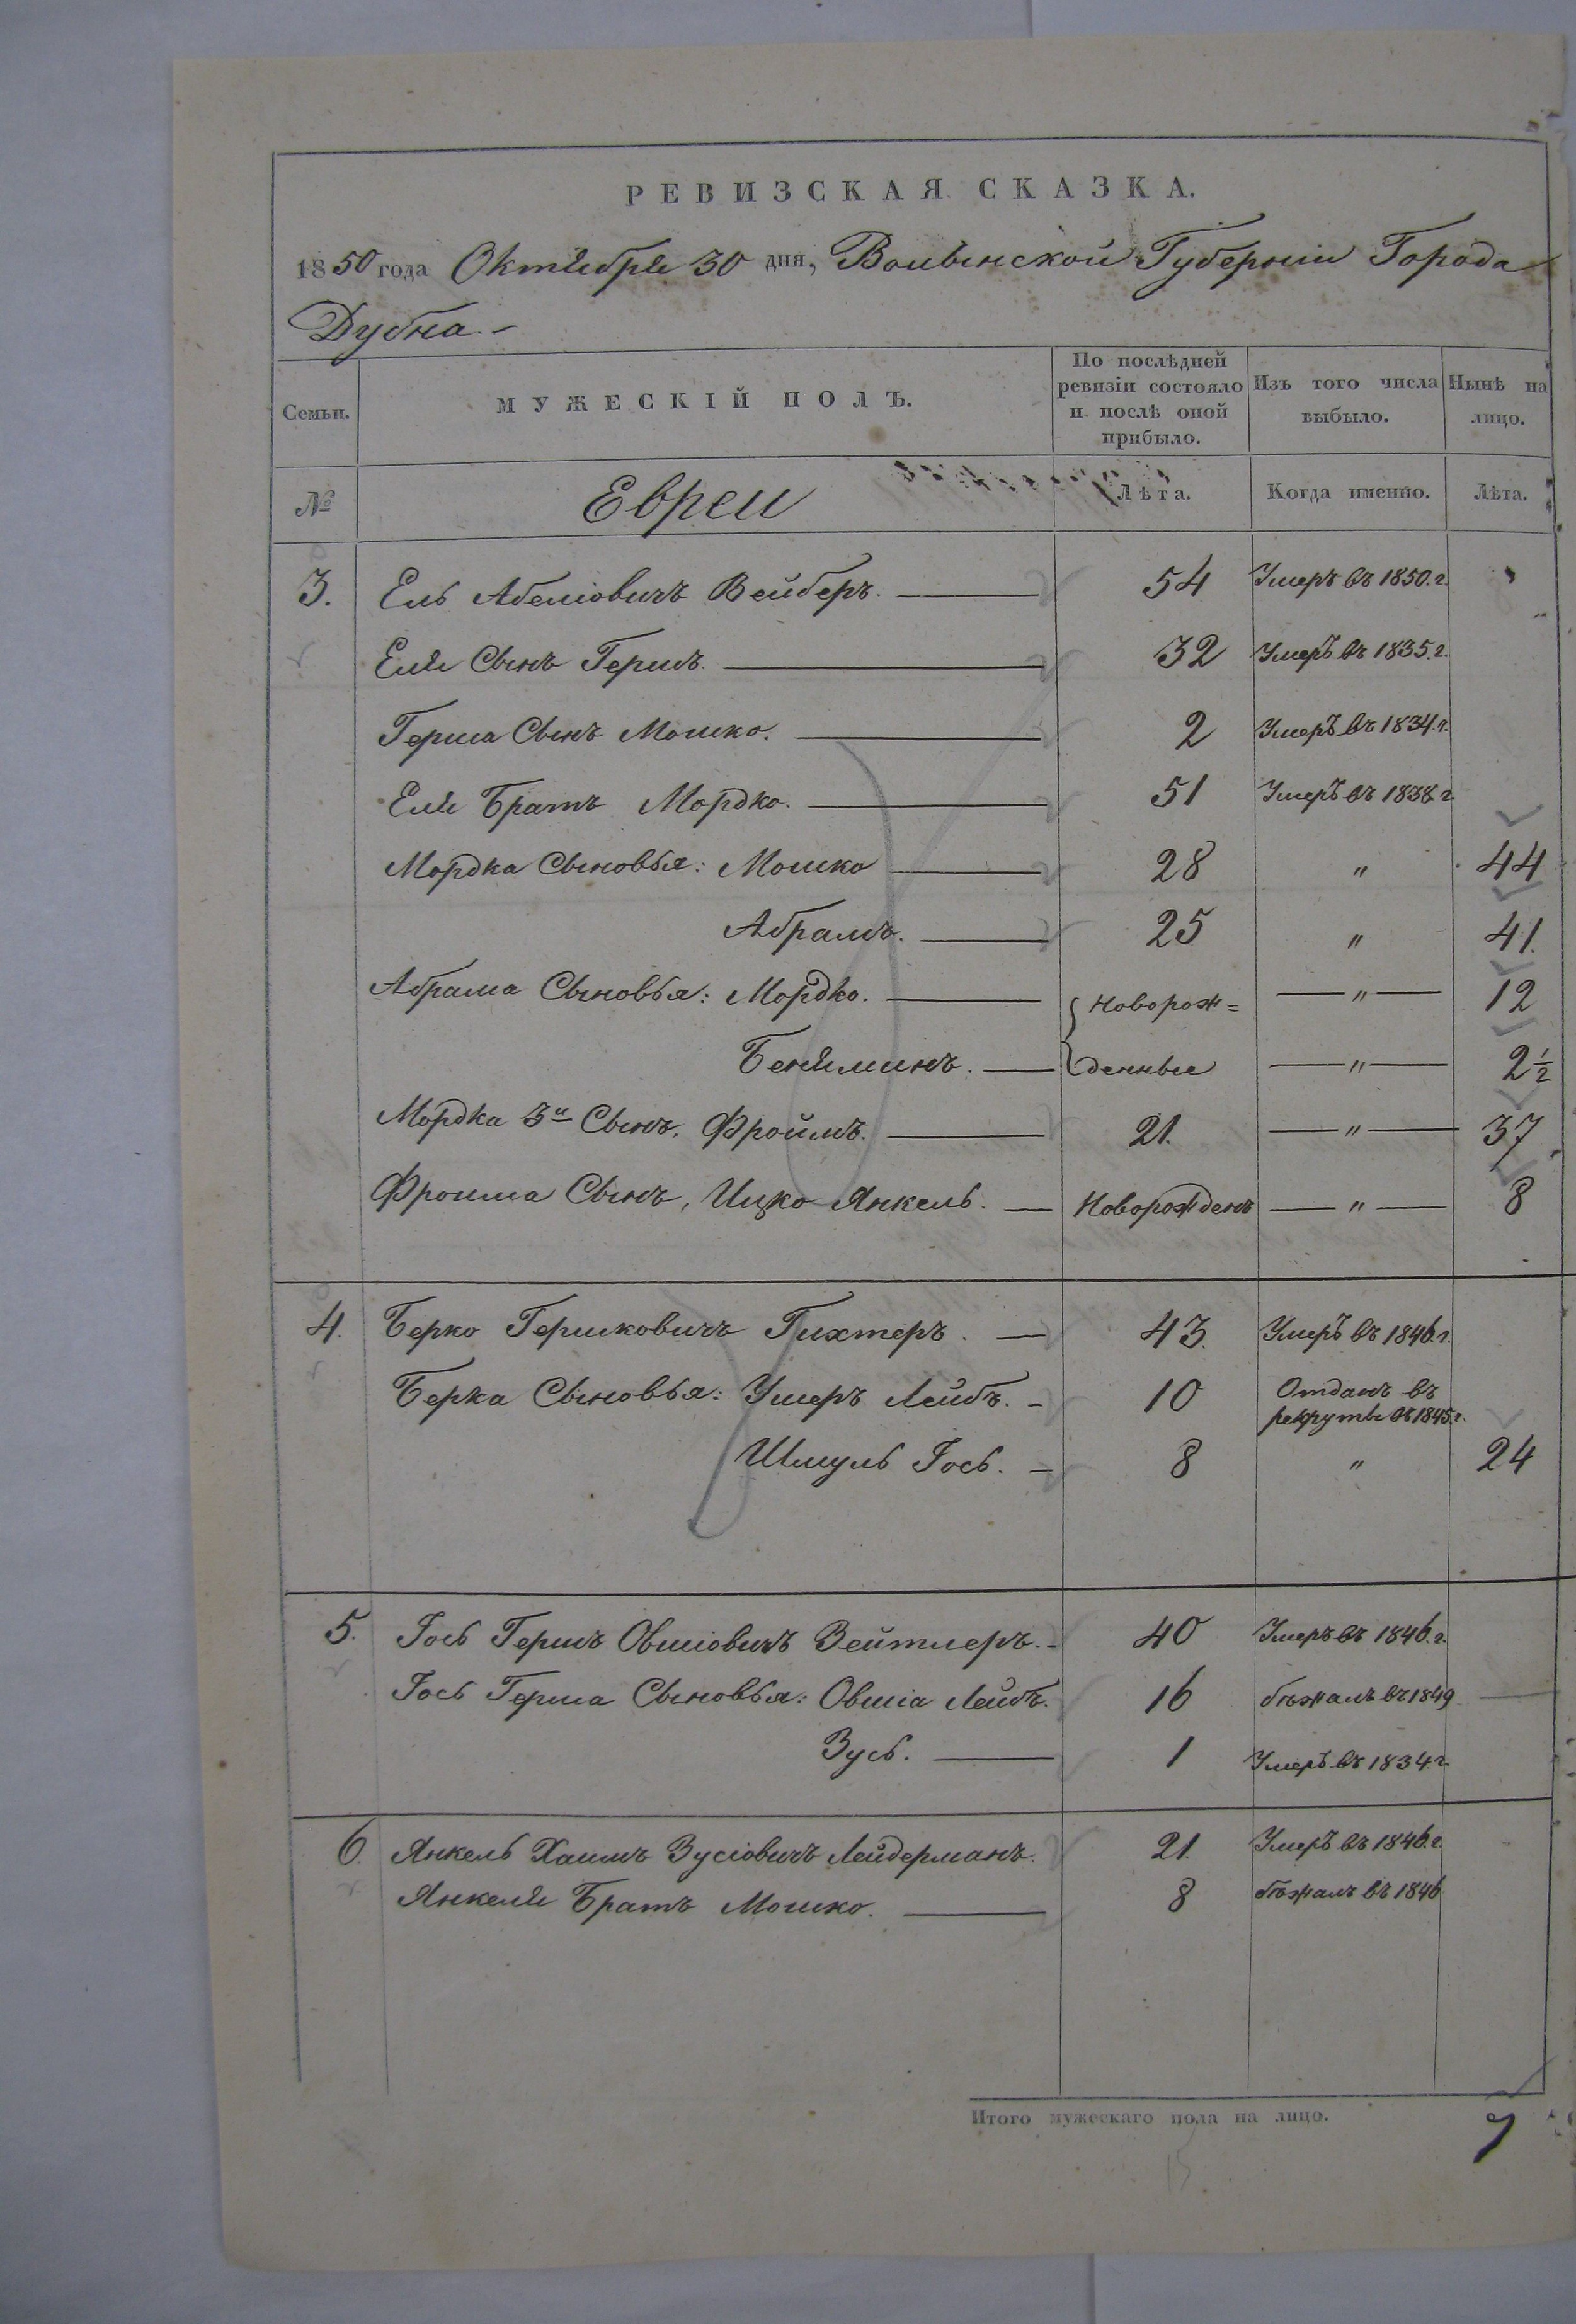 РЕВИЗСКАЯ СКАЗКА.
1850 года Октября 30 дня, Волынской Губерніи Города
Дубна.-
Семьи.
МУЖЕСКІЙ ПОЛЪ.
По послѣдней ревизіи состояло и послѣ оной прибыло.
Изъ того числа выбыло.
Нынѣ на лицо.
№ Евреи Лѣта. Когда именно. Лѣта.
3. Ель Абеліовичъ Вейберъ. 54 Умеръ въ 1850. г.
Еля Сынъ Гершъ. 32 Умеръ въ 1835. г.
Герша Сынъ Мошко. 2 Умеръ въ 1834. г.
Еля Братъ Мордко. 51 Умеръ въ 1838 г.
Мордка Сыновья: Мошко 28 " 44
Абрамъ. 25 " 41.
Абрама Сыновья: Мордко. Новорож= " 12
Беняминъ. денные " 2 1/2
Мордка 3й Сынъ, Фроимъ. 21. " 37
Фроима Сынъ, Ицко Янкель. Новорожденъ " 8
4. Берко Гершковичъ Гихтеръ. 43. Умеръ въ 1846. г.
Берка Сыновья: Умеръ Лейбъ. 10 Отданъ въ рекруты въ 1845 г.
Шмуль Іось. 8 " 24
5. Іось Гершъ Овшіовичъ Зейтлеръ. 40 Умеръ въ 1846. г.
Іось Герша Сыновья: Овшіа Лейбъ. 16 бѣжалъ въ 1849
Зусь. 1 Умеръ въ 1834. г.
6. Янкель Хаимъ Зусіовичъ Лейдерманъ. 21. Умеръ въ 1846. г.
Янкеля Братъ Мошко. 8 бѣжалъ въ 1846
Итого мужескаго пола на лицо. 7